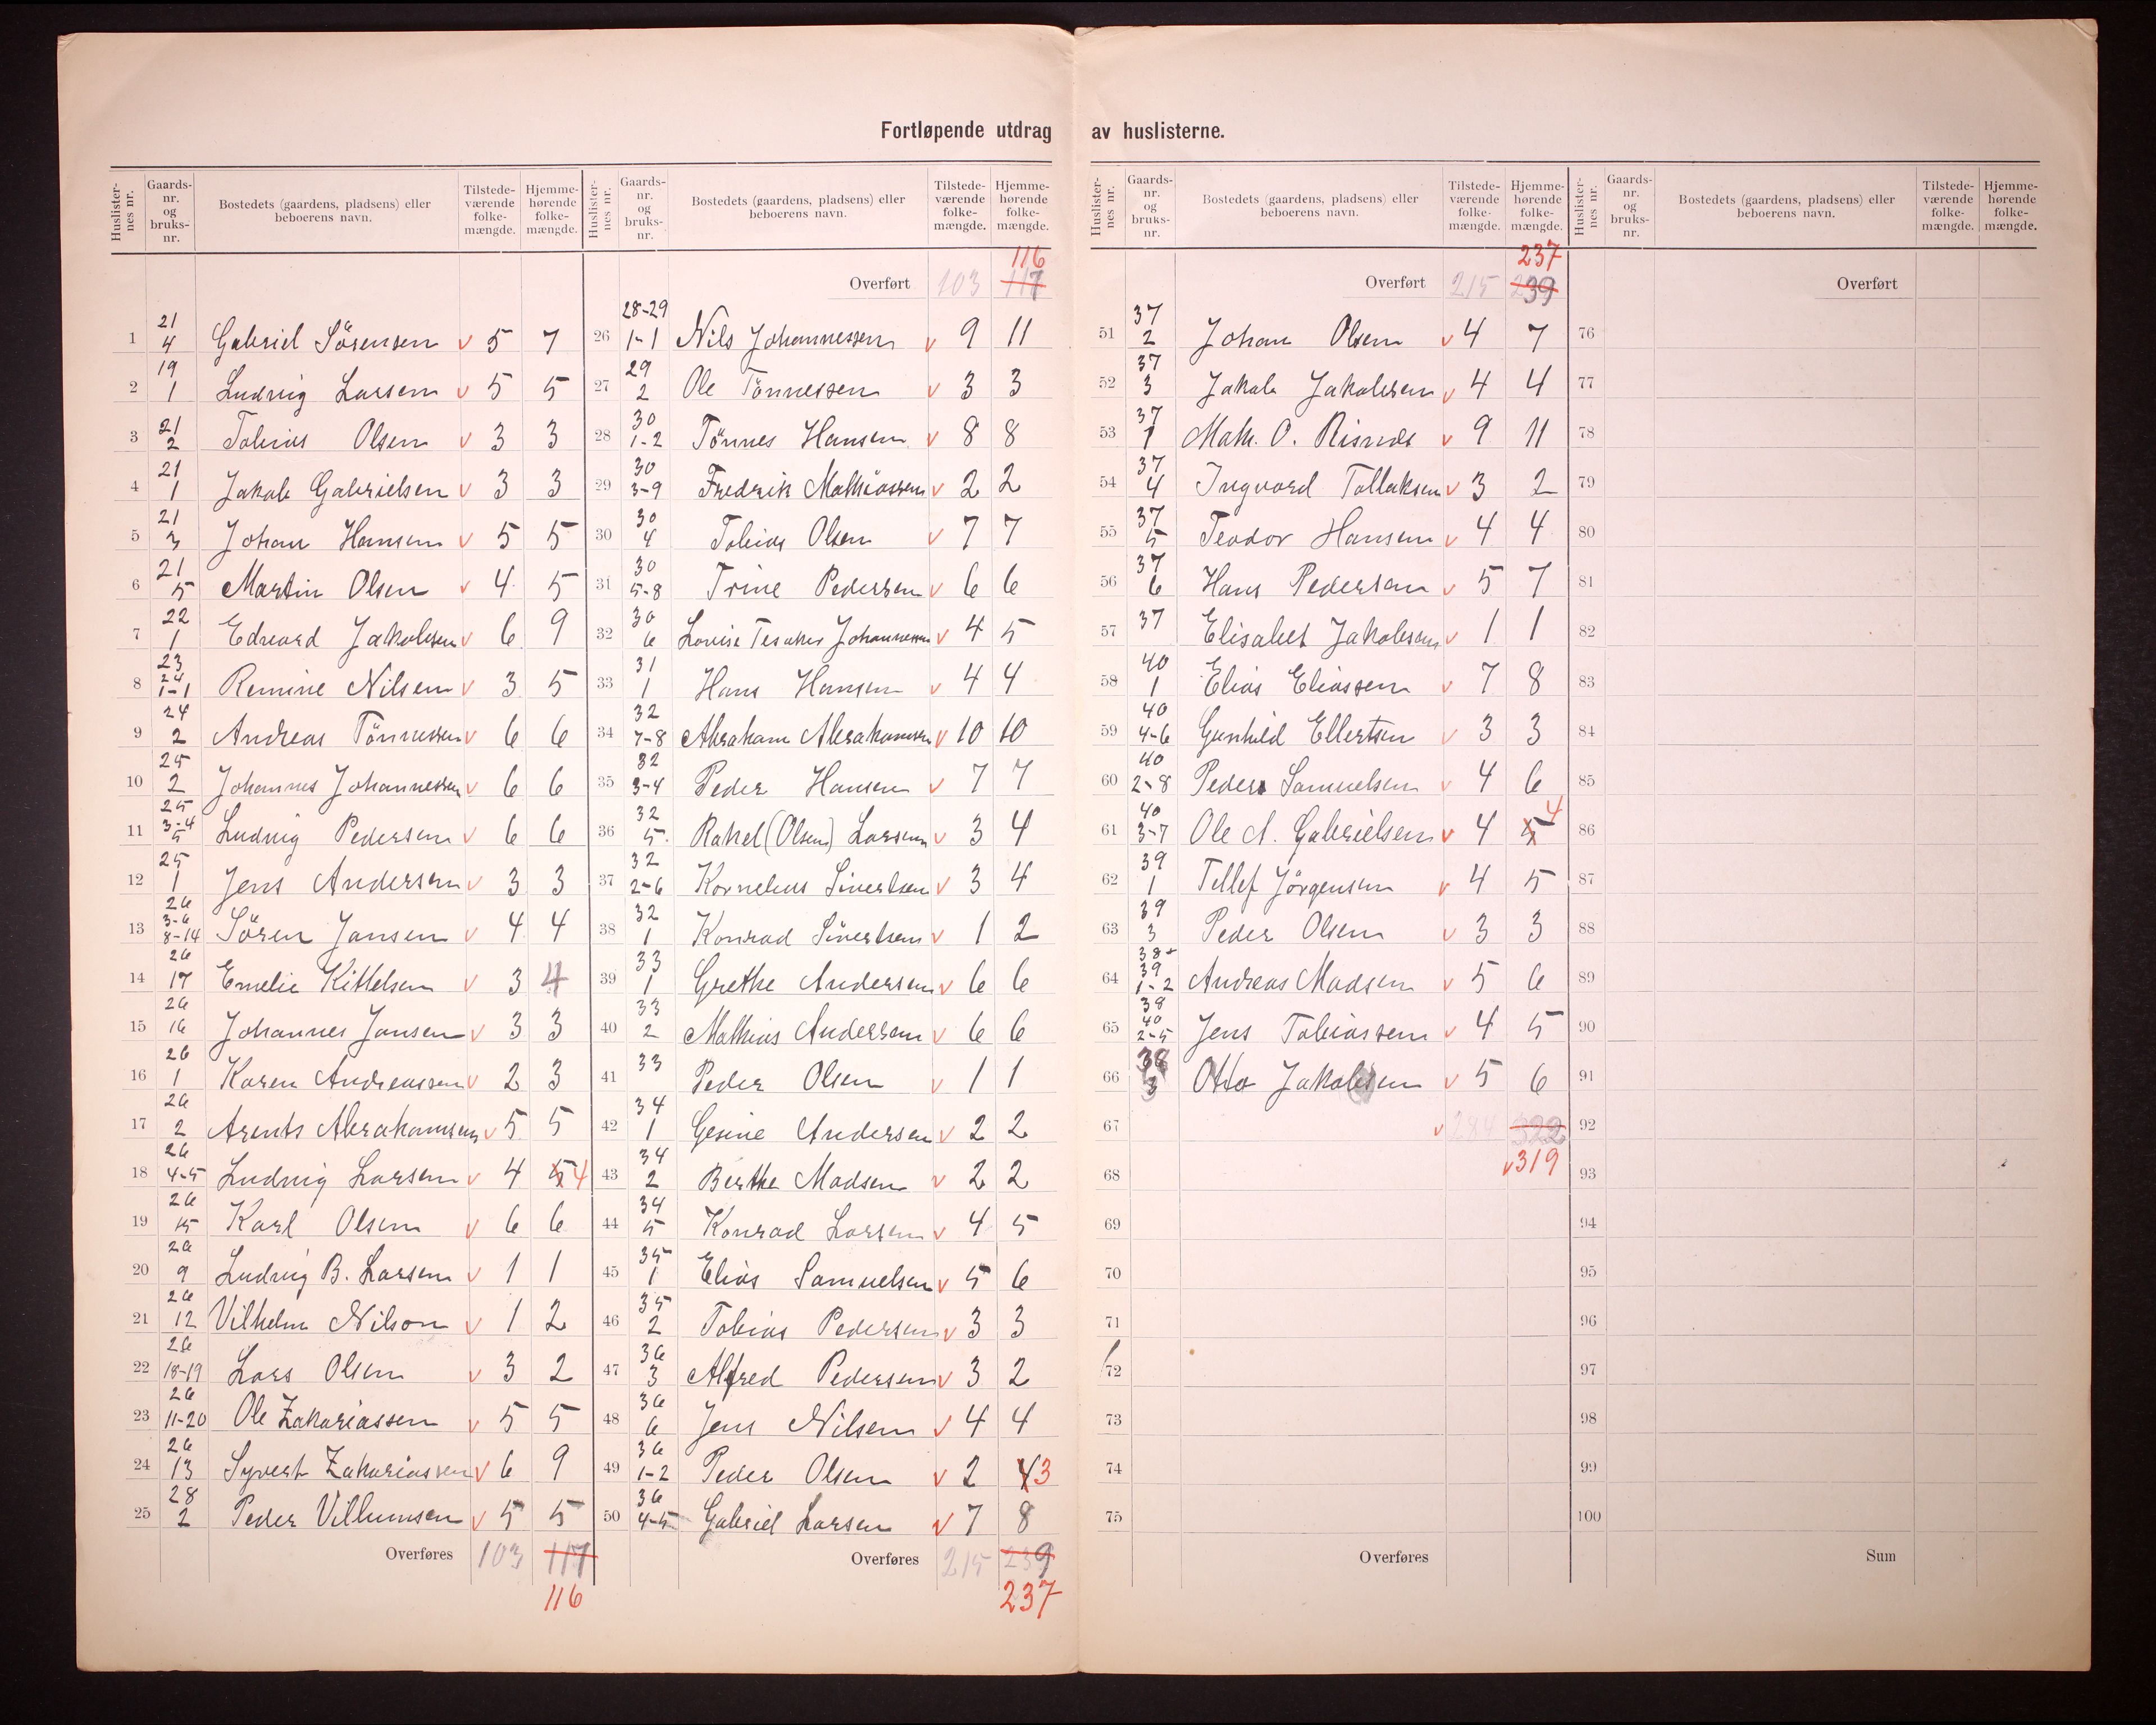 Fortløpende utdrag av huslisterne.
Huslister-nes nr. Gaards-nr. og bruks-nr. Bostedets (gaardens, pladsens) eller beboerens navn. Tilstede-værende folke-mængde. Hjemme-hørende folke-mængde.
1 21 4 Gabriel Sörensen v 5 7
2 19 1 Ludvig Larsen v 5 5
3 21 2 Tobias Olsen v 3 3
4 21 1 Jakob Gabrielsen v 3 3
5 21 3 Johan Hansen v 5 5
6 21 5 Martin Olsen v 4 5
7 22 1 Edvard Jakobsen v 6 9
8 23 24 1-1 Remine Nilsen v 3 5
9 24 2 Andreas Tönnessen v 6 6
10 25 2 Johannes Johannessen v 6 6
11 25 3-4 5 Ludvig Pedersen v 6 6
12 25 1 Jens Andersen v 3 3
13 26 3-6 8-14 Sören Jansen v 4 4
14 26 17 Emelie Kittelsen v 3 4
15 26 16 Johannes Jansen v 3 3
16 26 1 Karen Andreassen v 2 3
17 26 2 Arents Abrahamsen v 5 5
18 26 4-5 Ludvig Larsen v 4 5 4
19 26 15 Karl Olsen v 6 6
20 26 9 Ludvig B. Larsen v 1 1
21 26 12 Vilhelm Nilson v 1 2
22 26 18-19 Lars Olsen v 3 2
23 26 11-20 Ole Zakariassen v 5 5
24 26 13 Syvert Zakariassen v 6 9
25 28 2 Peder Villumsen v 5 5
Overføres 103 117
116
Huslister-nes nr. Gaards-nr. og bruks-nr. Bostedets (gaardens, pladsens) eller beboerens navn. Tilstede-værende folke-mængde. Hjemme-hørende folke-mængde.
116
Overført 103 117
26 28-29 1-1 Nils Johannessen v 9 11
27 29 2 Ole Tönnessen v 3 3
28 30 1-2 Tönnes Hansen v 8 8
29 30 3-9 Fredrik Mathiassen v 2 2
30 30 4 Tobias Olsen v 7 7
31 30 5-8 Trine Pedersen v 6 6
32 30 6 Lovise Tesaker Johannessen v 4 5
33 31 1 Hans Hansen v 4 4
34 32 7-8 Abraham Abrahamsen v 10 10
35 32 3-4 Peder Hansen v 7 7
36 32 5 Rakel (Olsen) Larsen v 3 4
37 32 2-6 Kornelius Sivertsen v 3 4
38 32 1 Konrad Sivertsen v 1 2
39 33 1 Grethe Andersen v 6 6
40 33 2 Mathias Andersen v 6 6
41 33 Peder Olsen v 1 1
42 34 1 Gesine Andersen v 2 2
43 34 2 Berthe Madsen v 2 2
44 34 5 Konrad Larsen v 4 5
45 35 1 Elias Samuelsen v 5 6
46 35 2 Tobias Pedersen v 3 3
47 36 3 Alfred Pedersen v 3 2
48 36 6 Jens Nilsen v 4 4
49 36 1-2 Peder Olsen v 2 4 3
50 36 4-5 Gabriel Larsen v 7 8
Overføres 215 239
237
Huslister-nes nr. Gaards-nr. og bruks-nr. Bostedets (gaardens, pladsens) eller beboerens navn. Tilstede-værende folke-mængde. Hjemme-hørende folke-mængde.
237
Overført 215 239
51 37 2 Johan Olsen v 4 7
52 37 3 Jakob Jakobsen v 4 4
53 37 1 Math. O. Risnes v 9 11
54 37 4 Ingvard Tallaksen v 3 2
55 37 5 Teodor Hansen v 4 4
56 37 6 Hans Pedersen v 5 7
57 37 Elisabet Jakobsen v 1 1
58 40 1 Elias Eliassen v 7 8
59 40 4-6 Gunhild Ellertsen v 3 3
60 40 2-8 Peder Samuelsen v 4 6
61 40 3-7 Ole A. Gabrielsen v 4 5 4
62 39 1 Tellef Jörgensen v 4 5
63 39 3 Peder Olsen v 3 3
64 38- 39 1-2 Andreas Madsen v 5 6
65 38 40 2-5 Jens Tobiassen v 4 5
66 38 3 Otto Jakobsen v 5 6
67 v 284 322
68 v 319
69
70
71
72
73
74
75
Overføres
Huslister-nes nr. Gaards-nr. og bruks-nr. Bostedets (gaardens, pladsens) eller beboerens navn. Tilstede-værende folke-mængde. Hjemme-hørende folke-mængde.
Overført
76
77
78
79
80
81
82
83
84
85
86
87
88
89
90
91
92
93
94
95
96
97
98
99
100
Sum